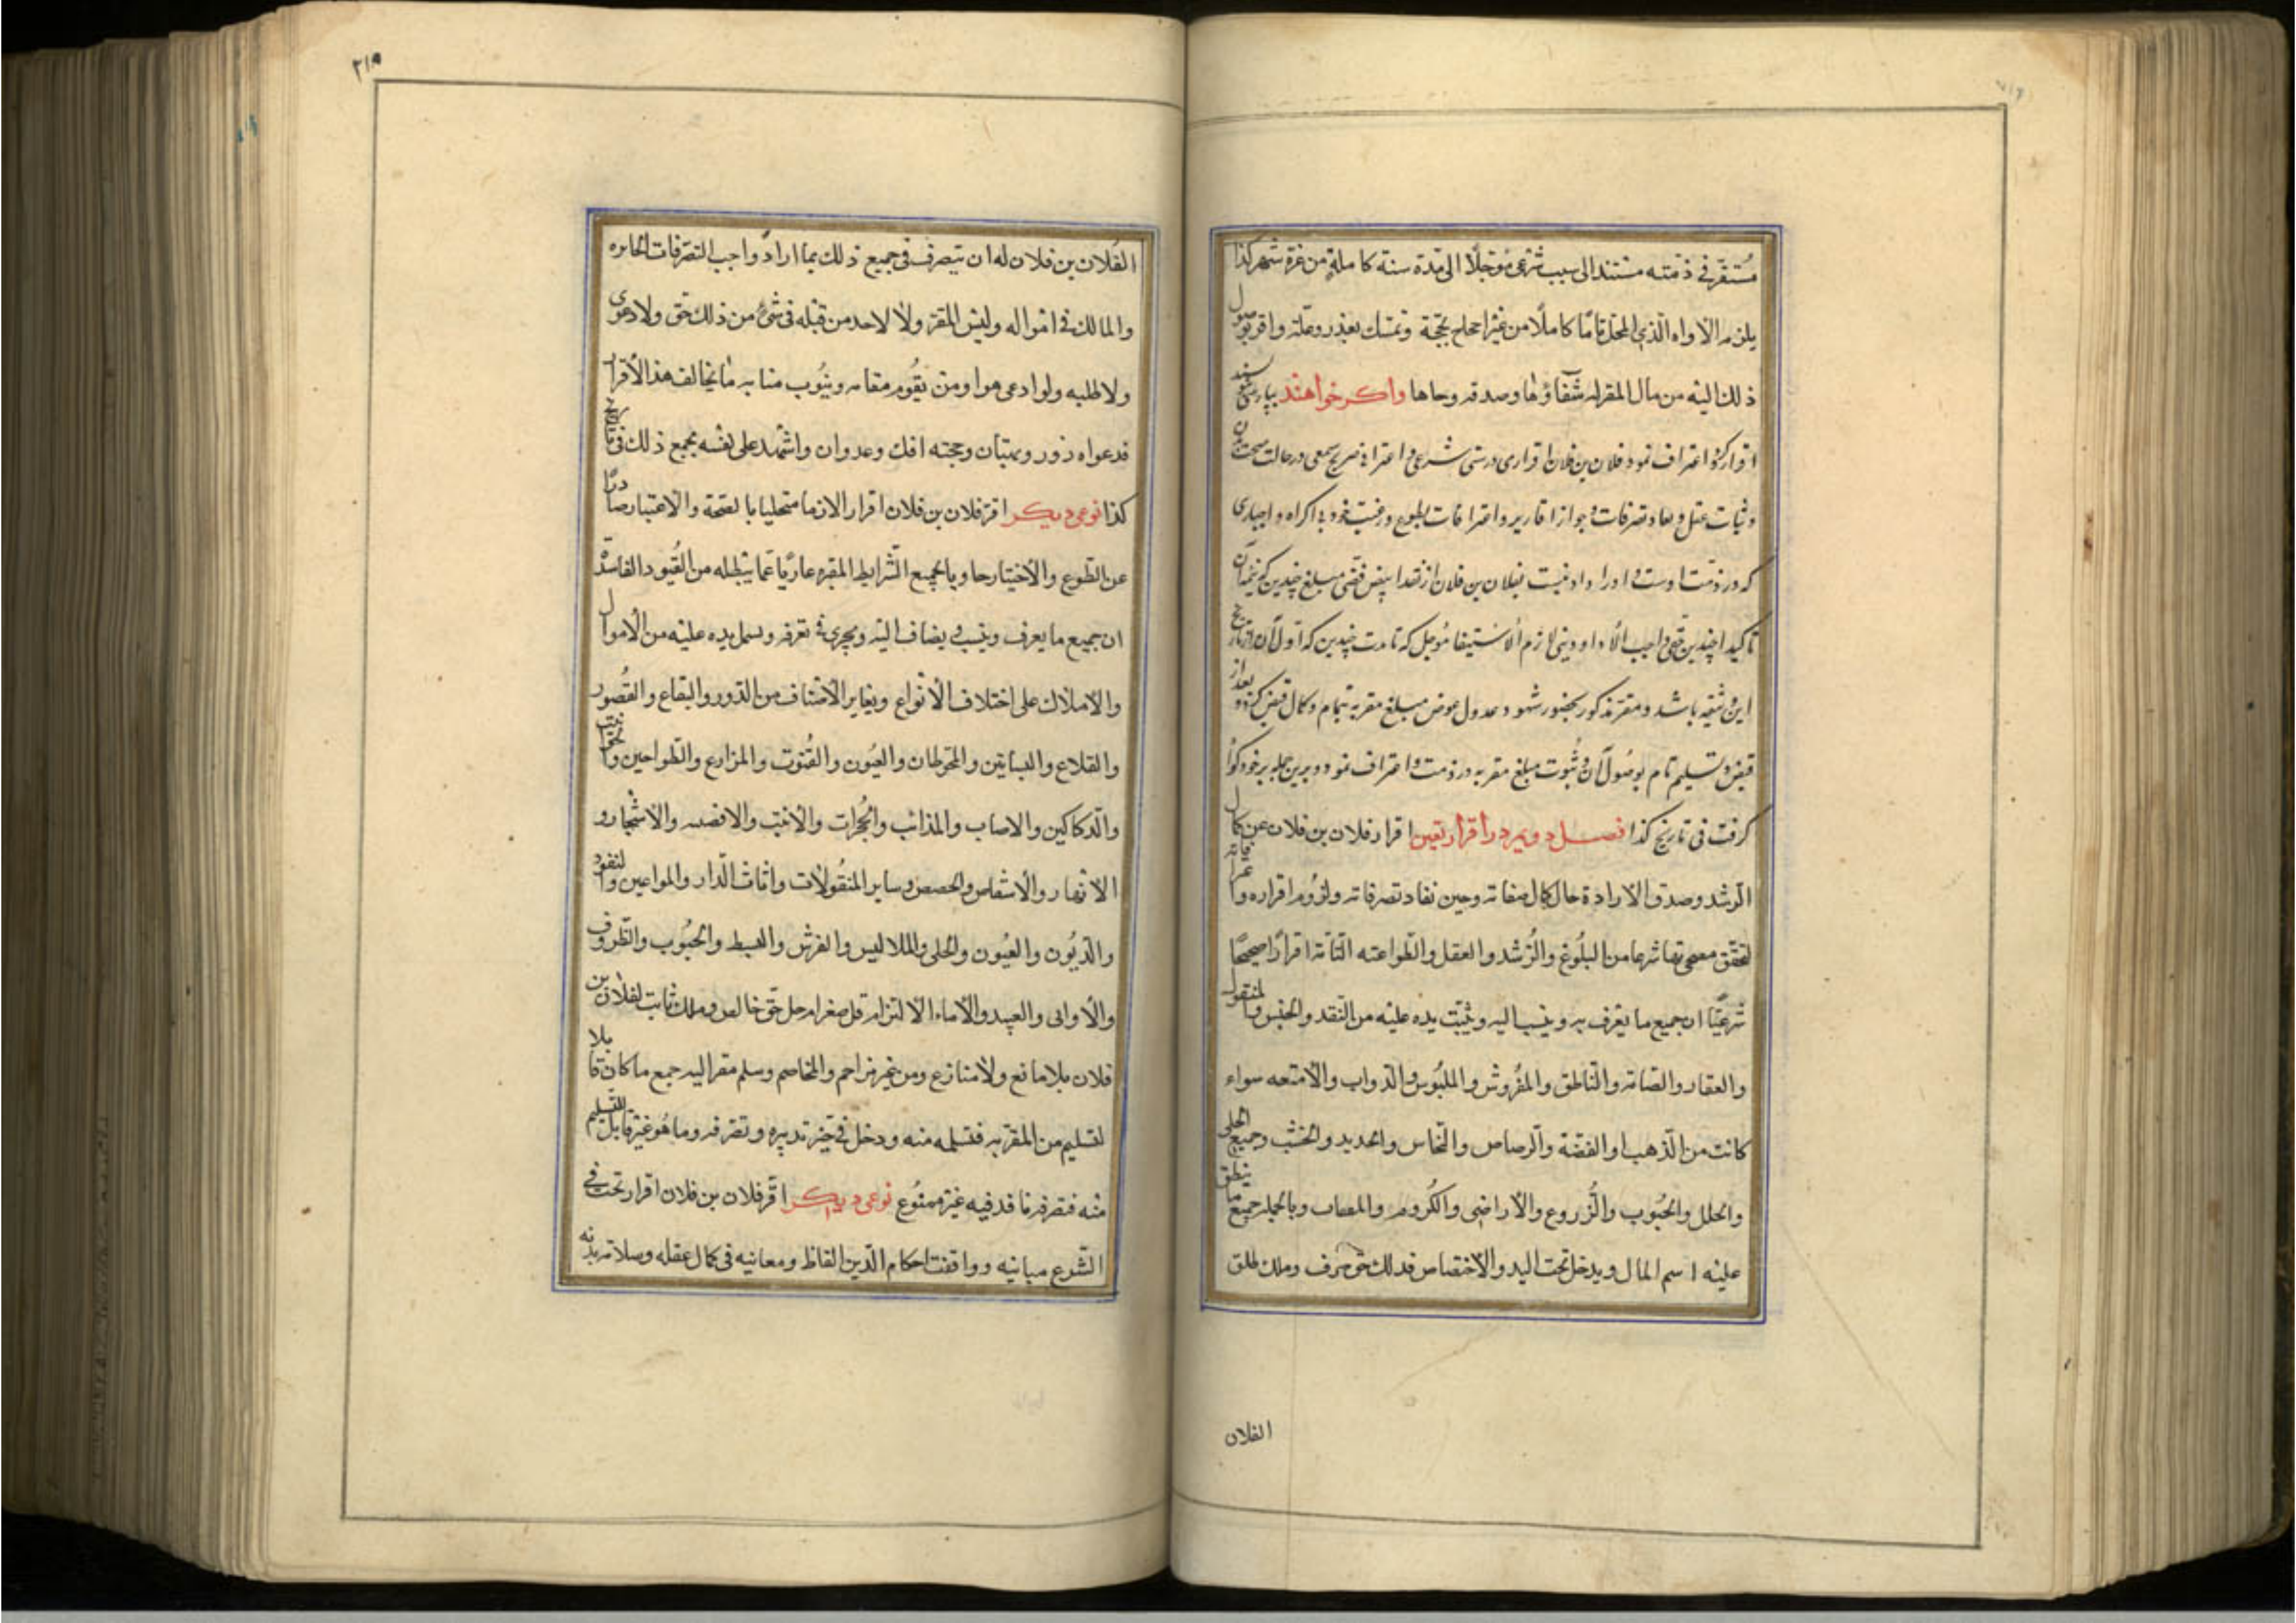 مستقر فی ذمته مستند الی سبب شرعی مؤجلا الی مدة سنة کاملة من غرة شهر کذا
یلزمه الاداء الذی المحل تاما کاملا من غیر احجاج بحجة وتمسک بعذر وعلة واقر بوصول
ذلک الیه من مال المقر له شفاؤها وصدقه وجاها واکر خواهند بپارسی نویسند
اقرار کرد و اعتراف نمود فلان بن فلان اقراری درستی شرعی و اعترافی صریح سمعی در حالت صحت بدن
و ثبات عقل و نفاد تصرفات و جواز اقاریر و اعترافات بطوع و رغبت خود بی اکراه و اجباری
که در ذمت اوست و اورا دادنیست بفلان بن فلان از نقد ابیض فضی مبلغ چندین که نیمه آن
تاکید را چندین حقی واجب الادا و دینی لازم الاستیفا مؤجل که تا مدت چندین که اول آن از تاریخ
این وثیقه باشد و مقر مذکور بحضور شهود عدول عوض مبلغ مقر به بتمام و کمال قبض کرد و بعد از
قبض و تسلیم تام بوصول آن و ثبوت مبلغ مقر به در ذمت و اعتراف نمود و برین جمله بر خود کوا
کرفت فی تاریخ کذا فصل دویم در اقرار بعین اقرار فلان بن فلان عن کمال
الرشد وصدق الارادة حال کمال صفاته وحین نفاد تصرفاته ولزوم اقراره واعترافاته
لتحقق من البلوغ والرشد والعقل والطواعته التامة اقرارا صحیحا
شرعیا ان جمیع ما یعرف به وینسب الیه ویثبت یده علیه من النقد والجنس والمنقول
والعقار والصامت والناطق والمفروش والملبوس والدواب والامتعه سواء
کانت من الذهب او الفضة والرصاص والنحاس والحدید والخشب وجمیع الحلی
والحلل والحبوب والزروع والاراضی والکروم والمصاب وبالجمله جمیع ما ینطق
علیه اسم المال ویدخل تحت الید والاختصاص فذلک حق صرف وملک طلق
الفلان
۲۱۵
الفلان بن فلان له ان یتصرف فی جمیع ذلک بما اراد واجب التصرفات الجایزه
والمالک فی امواله ولیس للمقر ولا لاحد من قبله فی شئ من ذلک حق ولا دعوی
ولا طلبه ولو ادعی هو او من یقوم مقامه وینوب منابه ما یخالف هذا الاقرار
فدعواه زور وبهتان وحجته افک وعدوان واشهد علی نفسه بجمیع ذلک فی تاریخ
کذا نوعی دیکر اقر فلان بن فلان اقرار الازما متحلیا بالصحة والاعتبار صادرا
عن الطوع والاختیار حاویا بجمیع الشرایط المقره عاریا عما یبطله من القیود الفاسدة
ان جمیع ما یعرف وینسب ویضاف الیه ویجری فی تعرفه ویسمل یده علیه من الاموال
والاملاک علی اختلاف الانواع وبغایر الاصناف من الدور والبقاع والقصور
والقلاع والبساتین والمحوطان والعیون والقنوت والمزارع والطواحین والحوانیت
والدکاکین والاصاب والمذائب والحجرات والاخب والاقضیه والاشجار و
الانهار والاشقاص والحصص وسایر المنقولات واثاث الدار والمواعین والنقود
والدیون والعیون والحلی والملابس والفرش والبسط والحبوب والظروف
والاوانی والعبید والاماء الالتزام قل صغر ام جل حق خالص وملک ثابت لفلان بن
فلان بلا مانع ولا منازع ومن غیر مزاحم والمخاصم وسلم مقرا الیه جمع ما کان قابلا
لتسلیم من المقر به فتسلمه منه ودخل فی حیز تدبیره وتصرفه وما هو غیر قابل للتسلیم
منه فتصرفه نافد فیه غیر ممنوع نوعی دیکر اقر فلان بن فلان اقرار تحت فی
الشرع مبانیه ووافقت احکام الدین الفاظ ومعانیه فی کمال عقله وسلامة بدنه